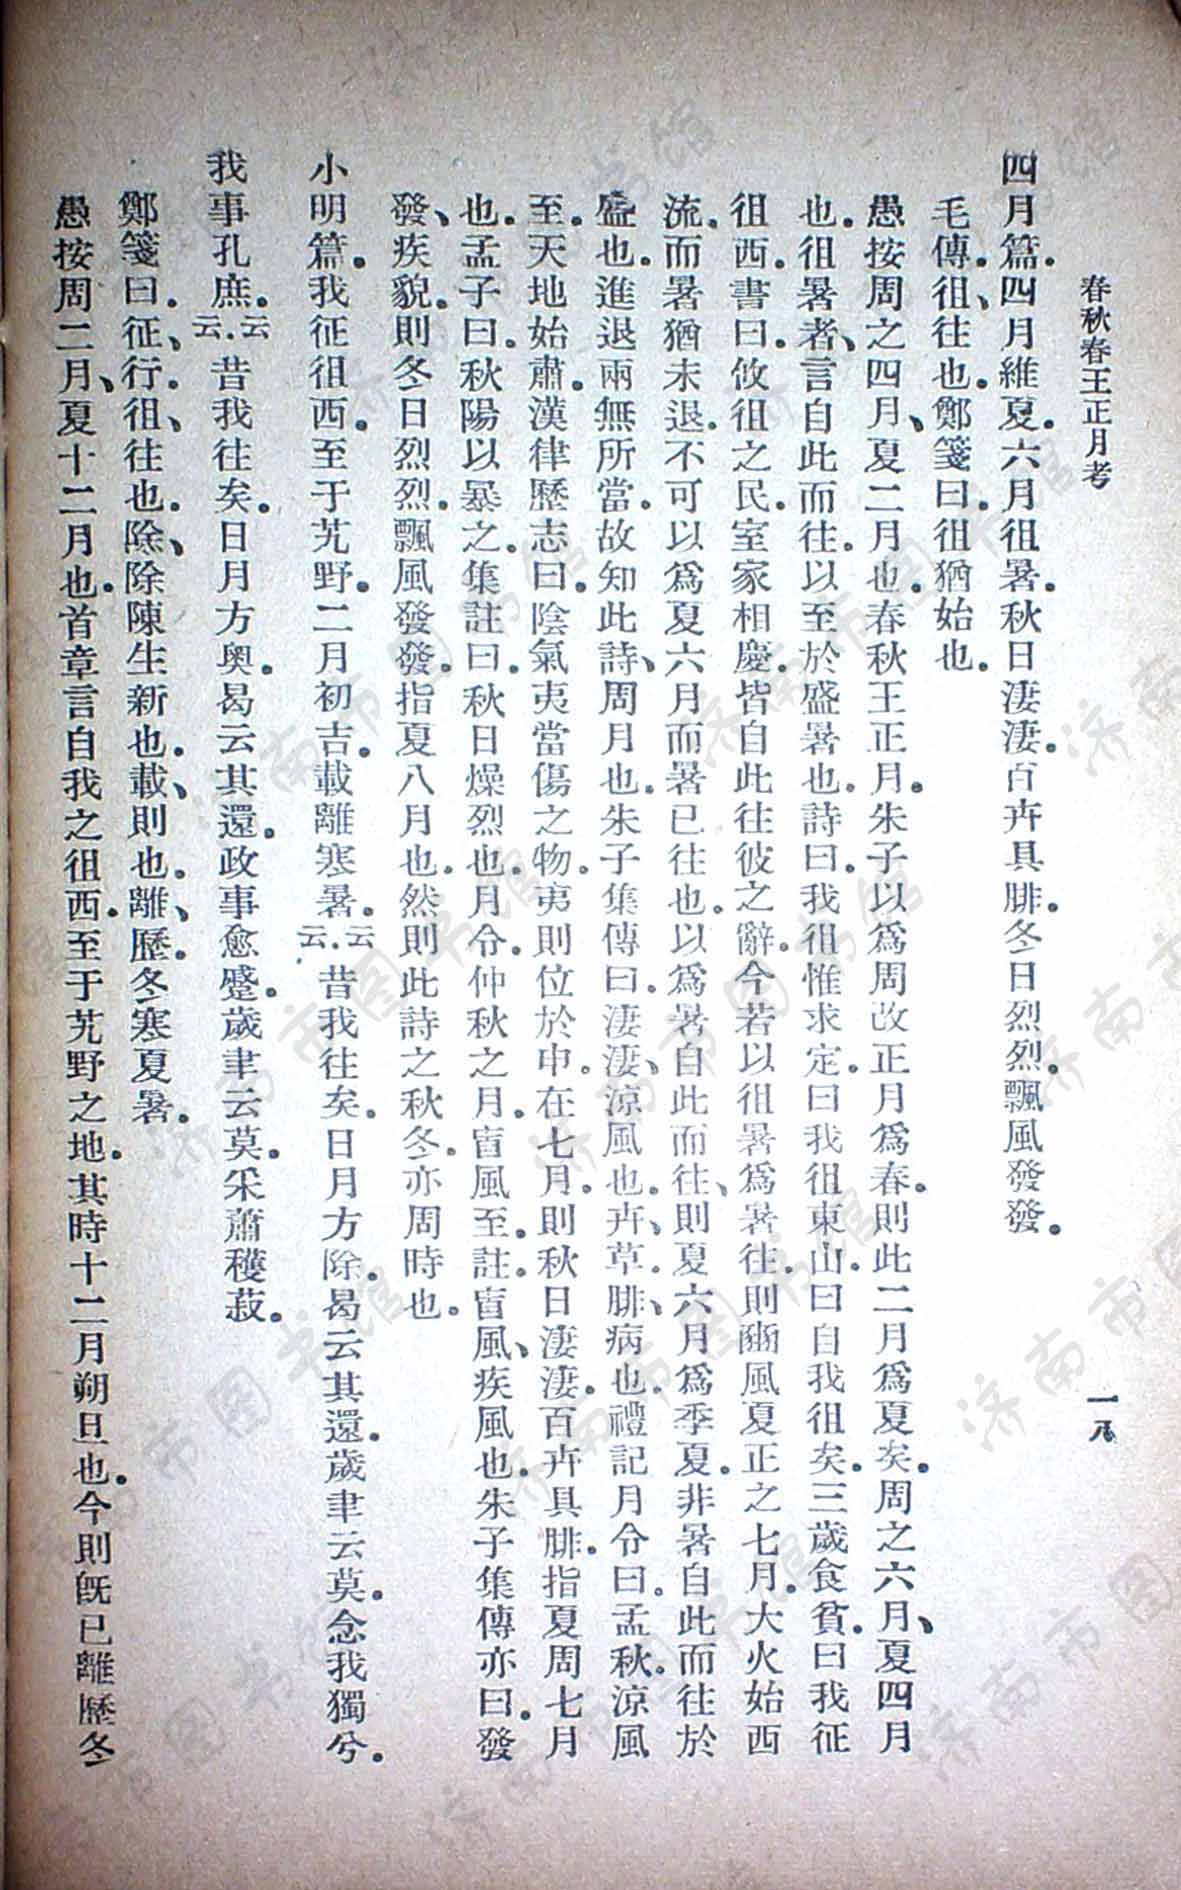 春秋春王正月考
一八
四月篇。四月維夏。六月徂暑。秋日淒淒。百卉具腓。冬日烈烈。飄風發發。
毛傳。徂、往也。鄭箋曰。徂猶始也。
愚按周之四月、夏二月也。春秋王正月。朱子以爲周改正月爲春。則此二月爲夏矣。周之六月、夏四月
也。徂暑者、言自此而往。以至於盛暑也。詩曰。我徂惟求定。曰我徂東山。曰自我徂矣。三歲食貧。曰我征
徂西。書曰。攸徂之民。室家相慶。皆自此往彼之辭。今若以徂暑爲暑往。則豳風夏正之七月。大火始西
流。而暑猶未退。不可以爲夏六月而暑已往也。以爲暑自此而往、則夏六月爲季夏。非暑自此而往於
盛也。進退兩無所當。故知此詩、周月也。朱子集傳曰。淒淒、涼風也。卉、草。腓、病也。禮記月令曰。孟秋。涼風
至。天地始肅。漢律歷志曰。陰氣夷當傷之物。夷則位於申。在七月。則秋日淒淒。百卉具腓。指夏周七月
也。孟子曰。秋陽以暴之。集註曰。秋日燥烈也。月令。仲秋之月。盲風至。註。盲風、疾風也。朱子集傳亦曰。發
發、疾貌。則冬日烈烈。飄風發發。指夏八月也。然則此詩之秋冬。亦周時也。
小明篇。我征徂西。至于艽野。二月初吉。載離寒暑。云云。昔我往矣。日月方除。曷云其還。歲聿云莫。念我獨兮。
我事孔庶。云云。昔我往矣。日月方奧。曷云其還。政事愈蹙。歲聿云莫。采蕭穫菽。
鄭箋曰。征、行。徂、往也。除、除陳生新也。載、則也。離、歷。冬寒夏暑。
愚按周二月、夏十二月也。首章言自我之徂西。至于艽野之地。其時十二月朔旦也。今則旣已離歷冬
济南市图书馆